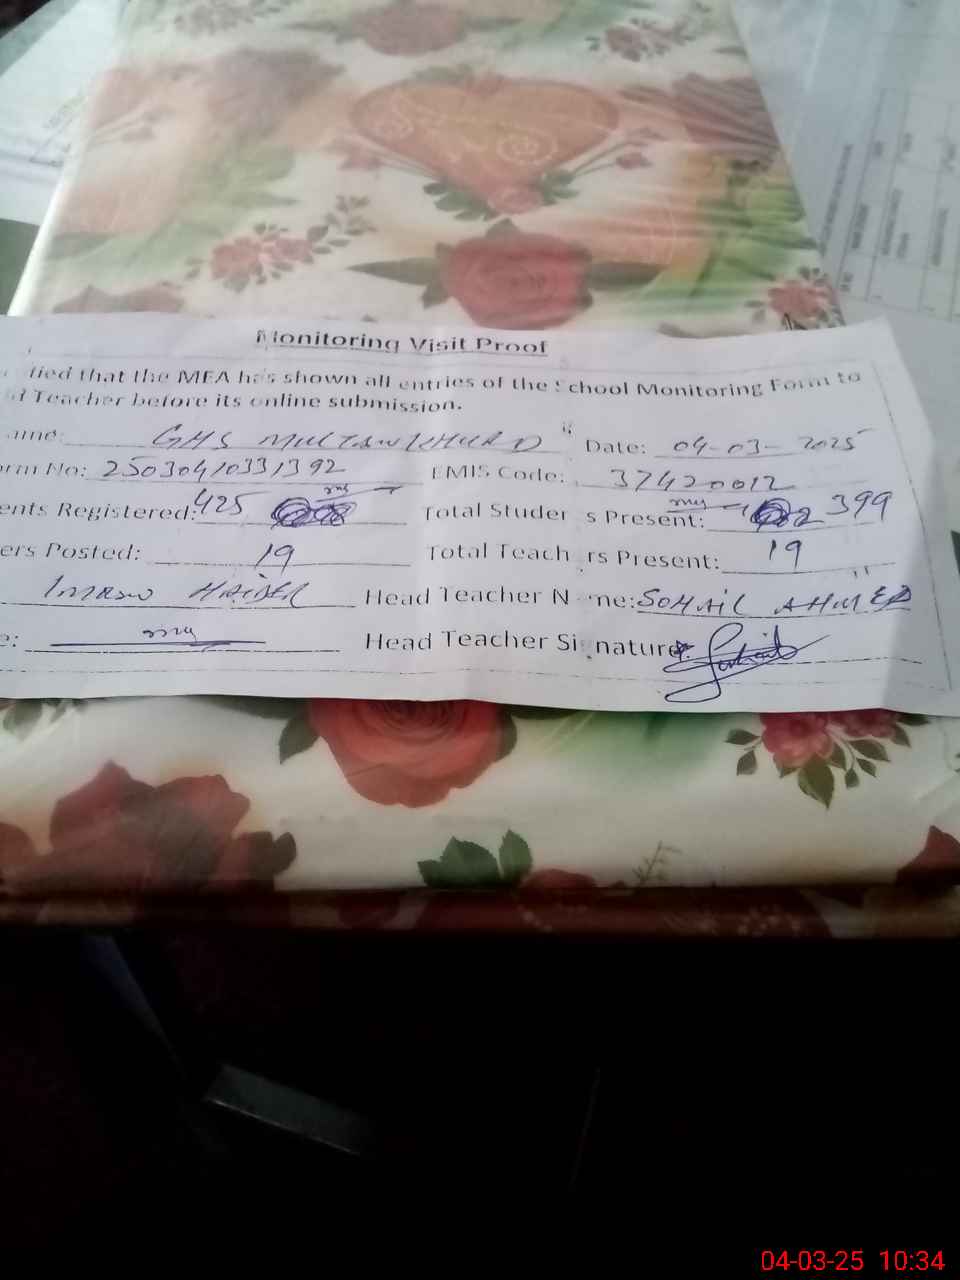 Monitoring Visit Proof
tied that the MEA has shown all entries of the School Monitoring Form to
d Teacher before its online submission.
ame: GHS MULTAN KHURD Date: 04-03-2025
orm No: 25030410331392 EMIS Code: 37420012
ents Registered: 425 Total Students Present: 399
ers Posted: 19 Total Teachers Present: 19
IMRAN HAIDER Head Teacher Name: SOHAIL AHMED
e: Head Teacher Signature:
04-03-25 10:34